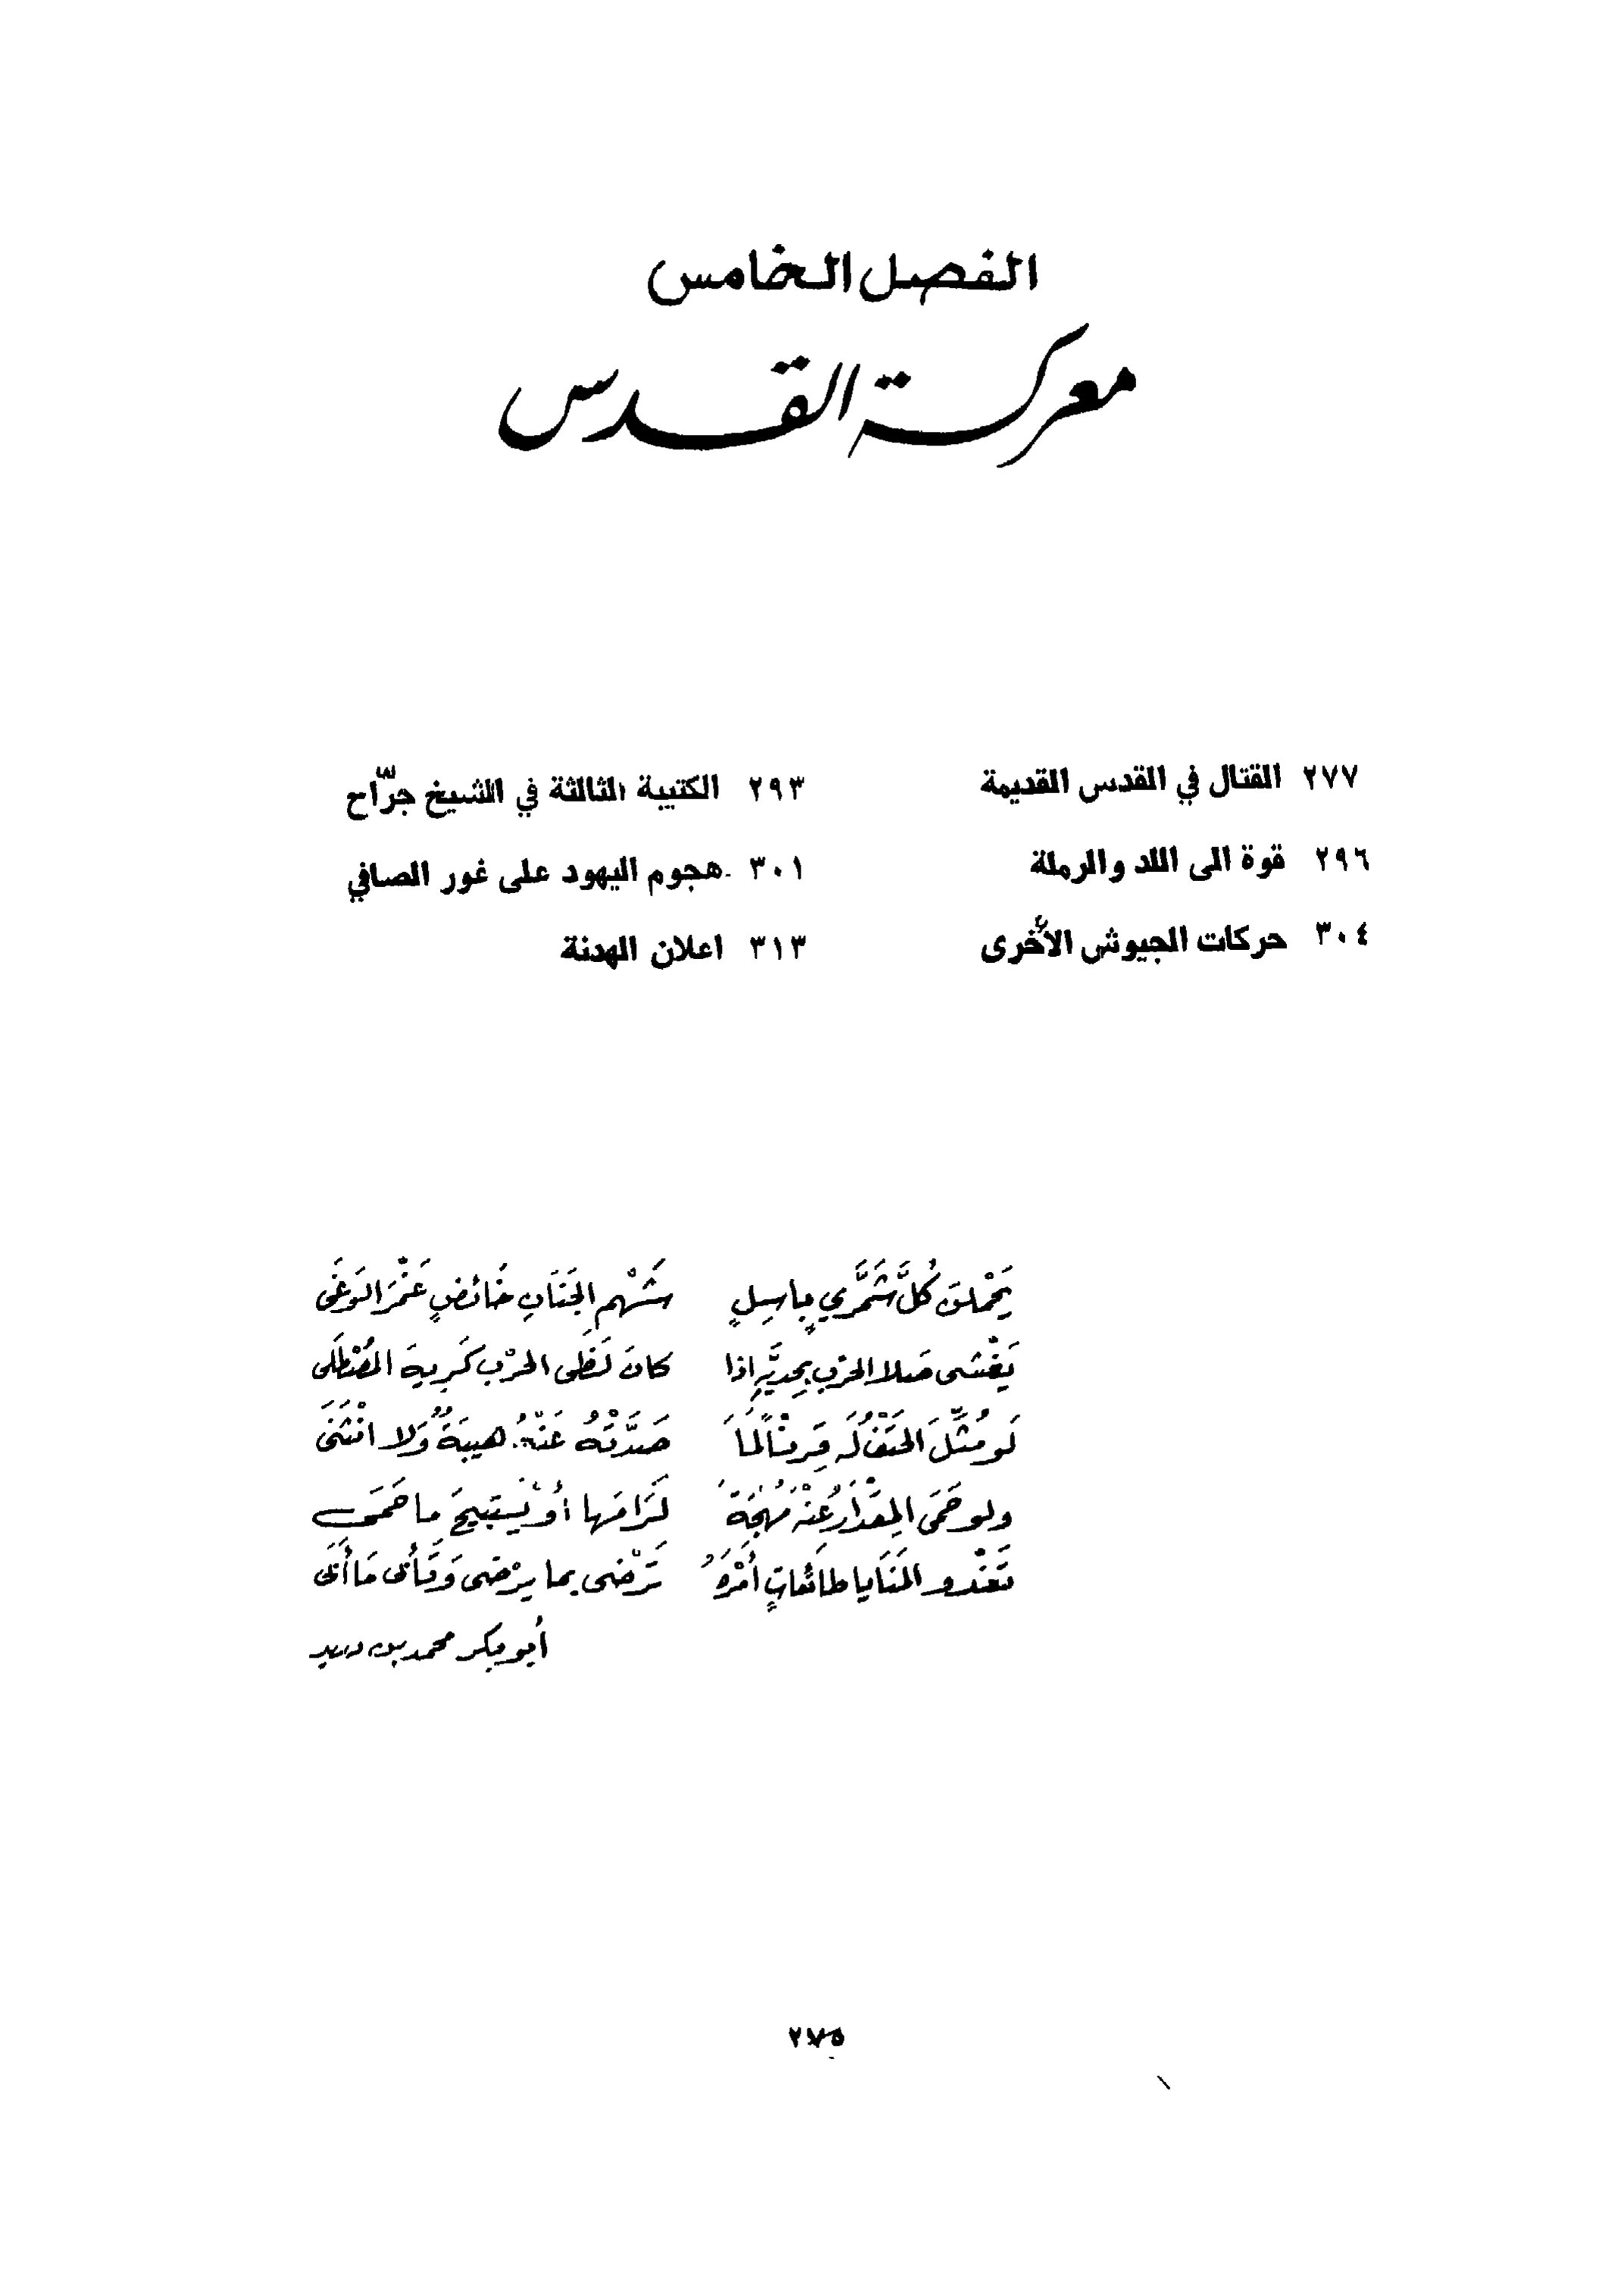 الفصل الخامس
معركة القدس
٢٧٧ القتال في القدس القديمة
٢٩٣ الكتيبة الثالثة في الشيخ جرّاح
٢٩٦ قوة الى اللد والرملة
٣٠١ هجوم اليهود على غور الصافي
٣٠٤ حركات الجيوش الأُخرى
٣١٣ اعلان الهدنة
يَحْملنَ كُلَّ شَمَّرِيٍ باسِلٍ شَهْمِ الجَنَانِ خَائضٍ غَمْرَ الوَغَى
يَغْشى صَلا الحرْبِ بِحدَّيْهِ إذا كانَ لَظى الحرْبِ كَرِيهَ المُصْطَلَى
لَو مُثِّلَ الحَتْفُ لَهُ قِرنًا لَمَا صَدَّتْهُ عَنْهُ هيبَةٌ وَلا انْثَنَى
ولو حَمَى المِقْدَارُ عَنْهُ مُهْجَةً لَرَامَها أوْ يَستَبيحَ ما حَمَى
تَغْدو المَنَايا طائعَاتٍ أمْرَهُ تَرْضى بما يرْضى وَتَأبَى مَا أَبَى
أبو بكر محمد بن دريد
٢٧٥